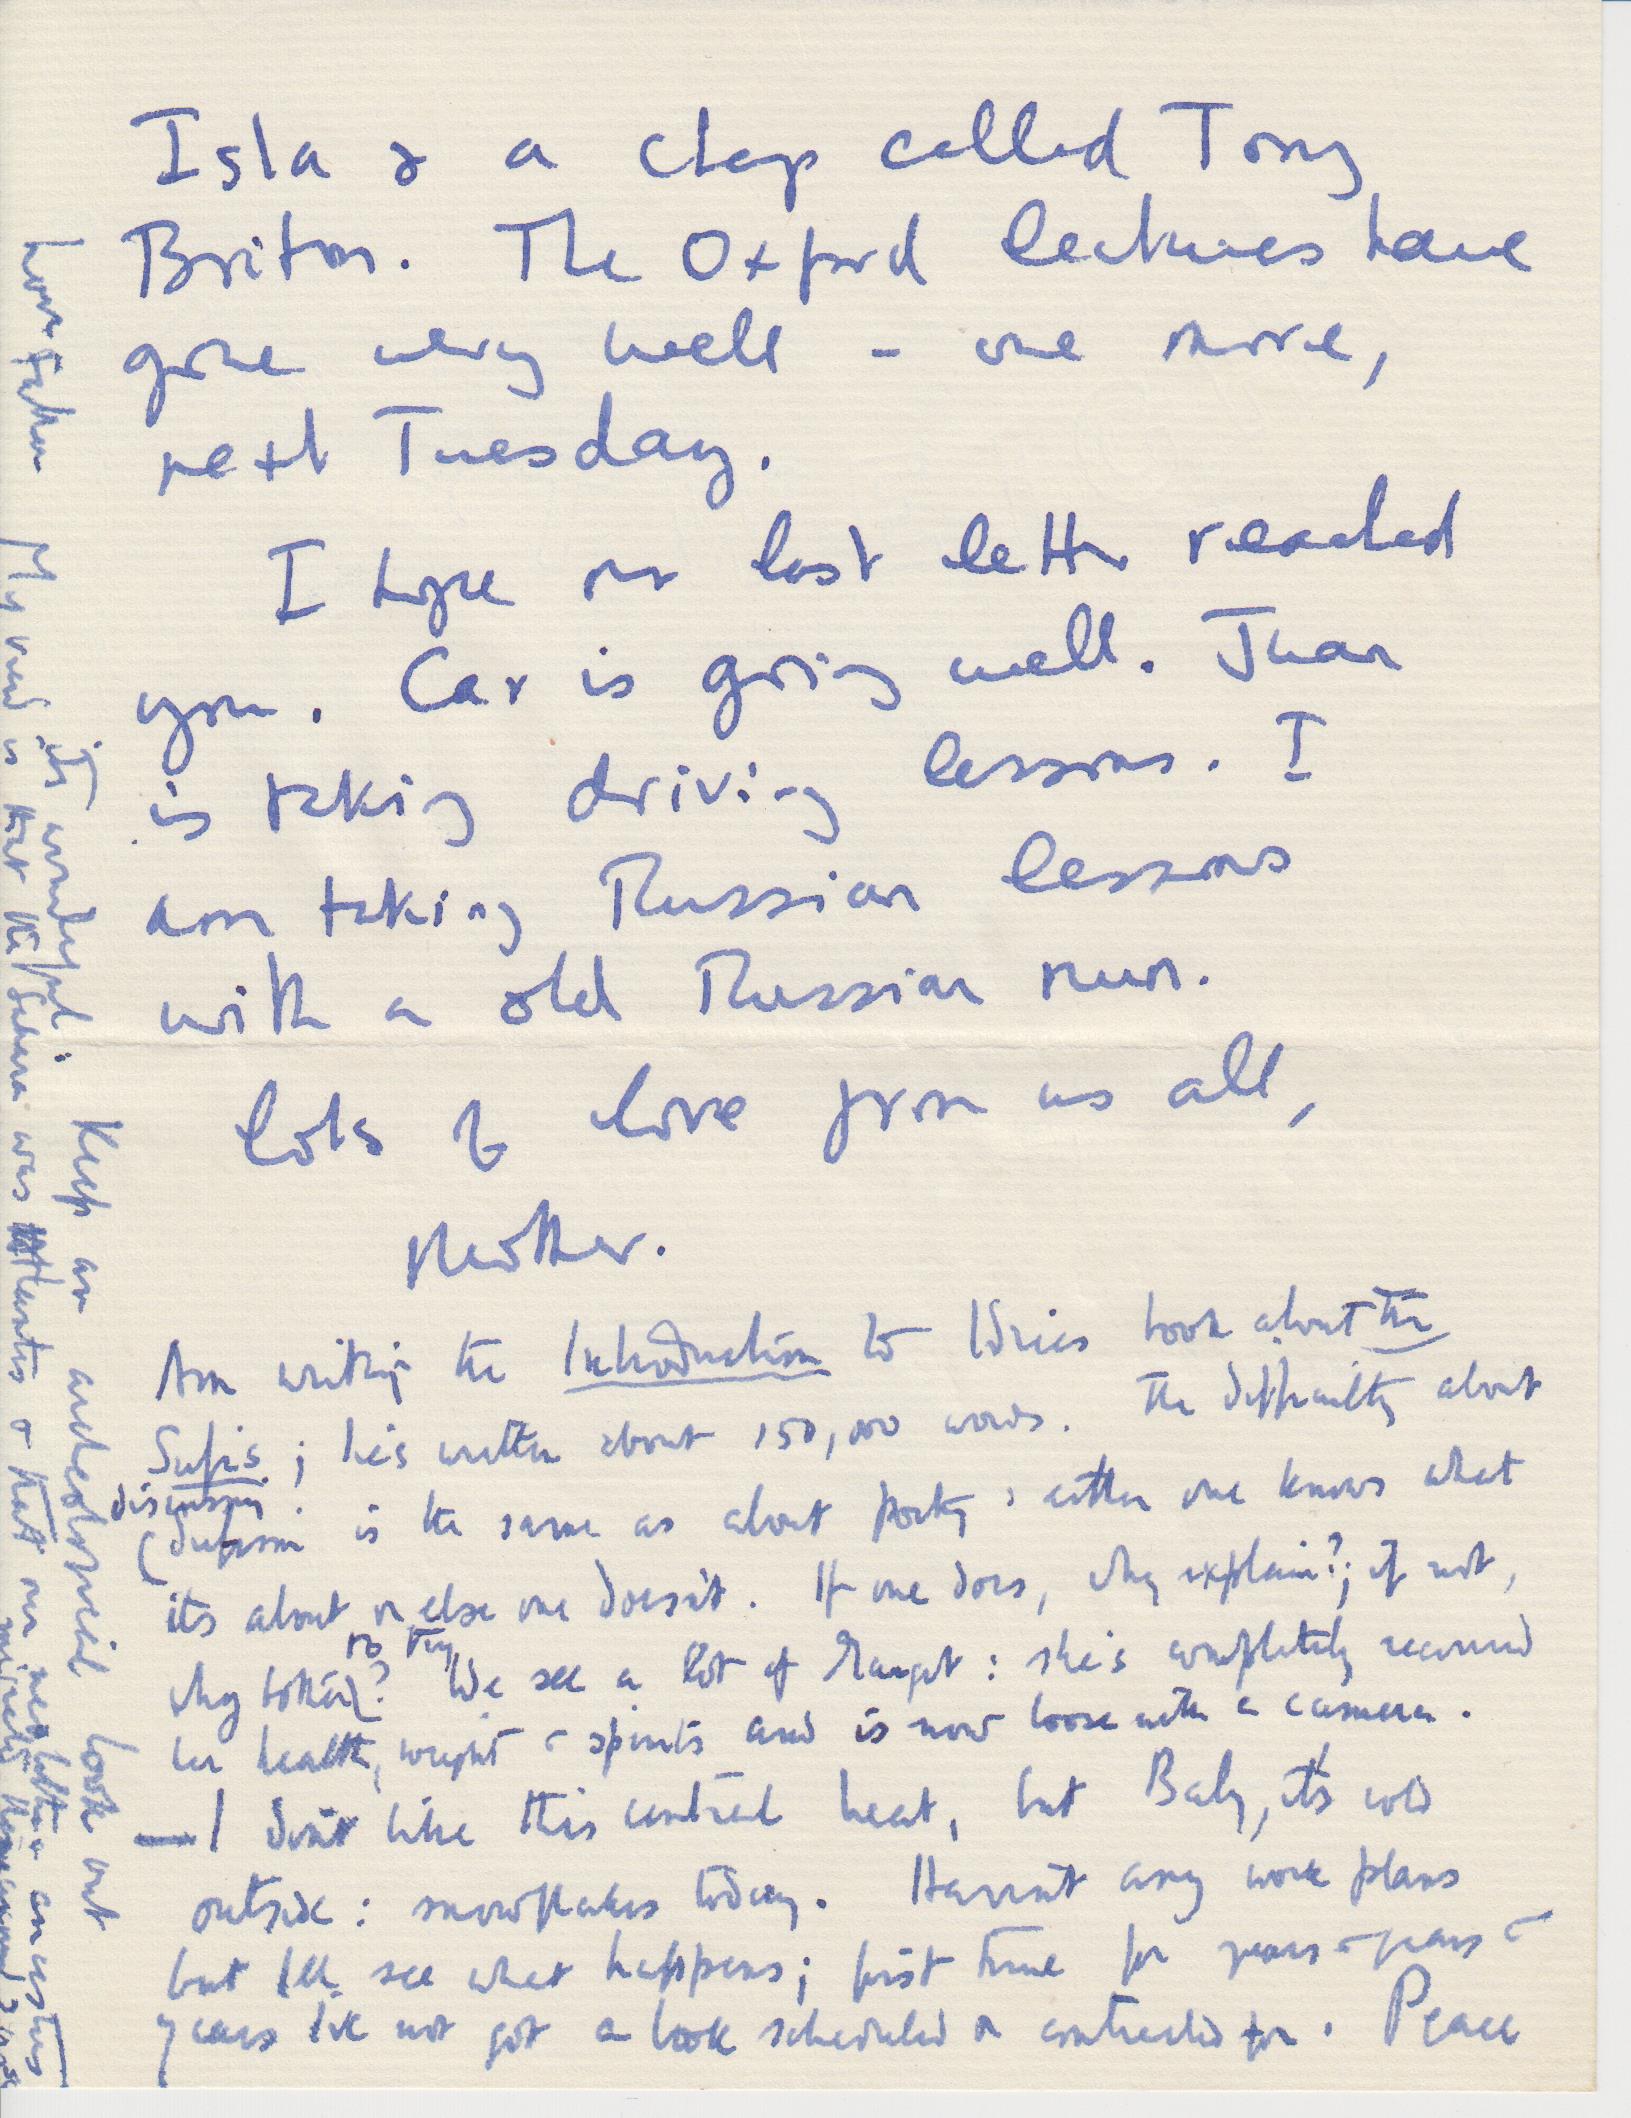 Isla & a chap called Tony
Briton. The Oxford lectures have
gone very well - one more,
next Tuesday.
I hope our last letter reached
you. Car is going well. Juan
is taking driving lessons. I
am taking Russian lessons
with a old Russian nun.
Lots of love from us all,
Mother.
Am writing the Introduction to Idries book about The
Sufis; he's written about 150,000 words. The difficulty about
discussing
(Sufism is the same as about poetry: either one knows what
its about or else one doesn't. If one does, why explain?; if not,
why bother? We see a lot of Margot: she's completely recovered
to try
her health, weight & spirits and is now loose with a camera.
— I don't like this central heat, but Baby, it's cold
outside: snowflakes today. Haven't any work plans
but I'll see what happens; first time for years & years &
years I've not got a book scheduled or contracted for. Peace
it's wonderful. Keep an archeological look out
Love Father My view is that the Sahara was Atlantis & that our neolithic ancestors